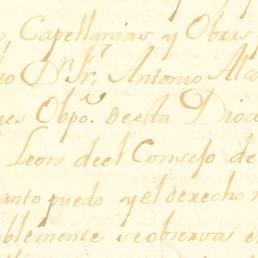 , Capellanias y Obras
Dn. Fr. Antonio Alc
es Obpo. de esta Dioc
Leon del Consejo de
anto puedo y el derecho
blemente se observas e